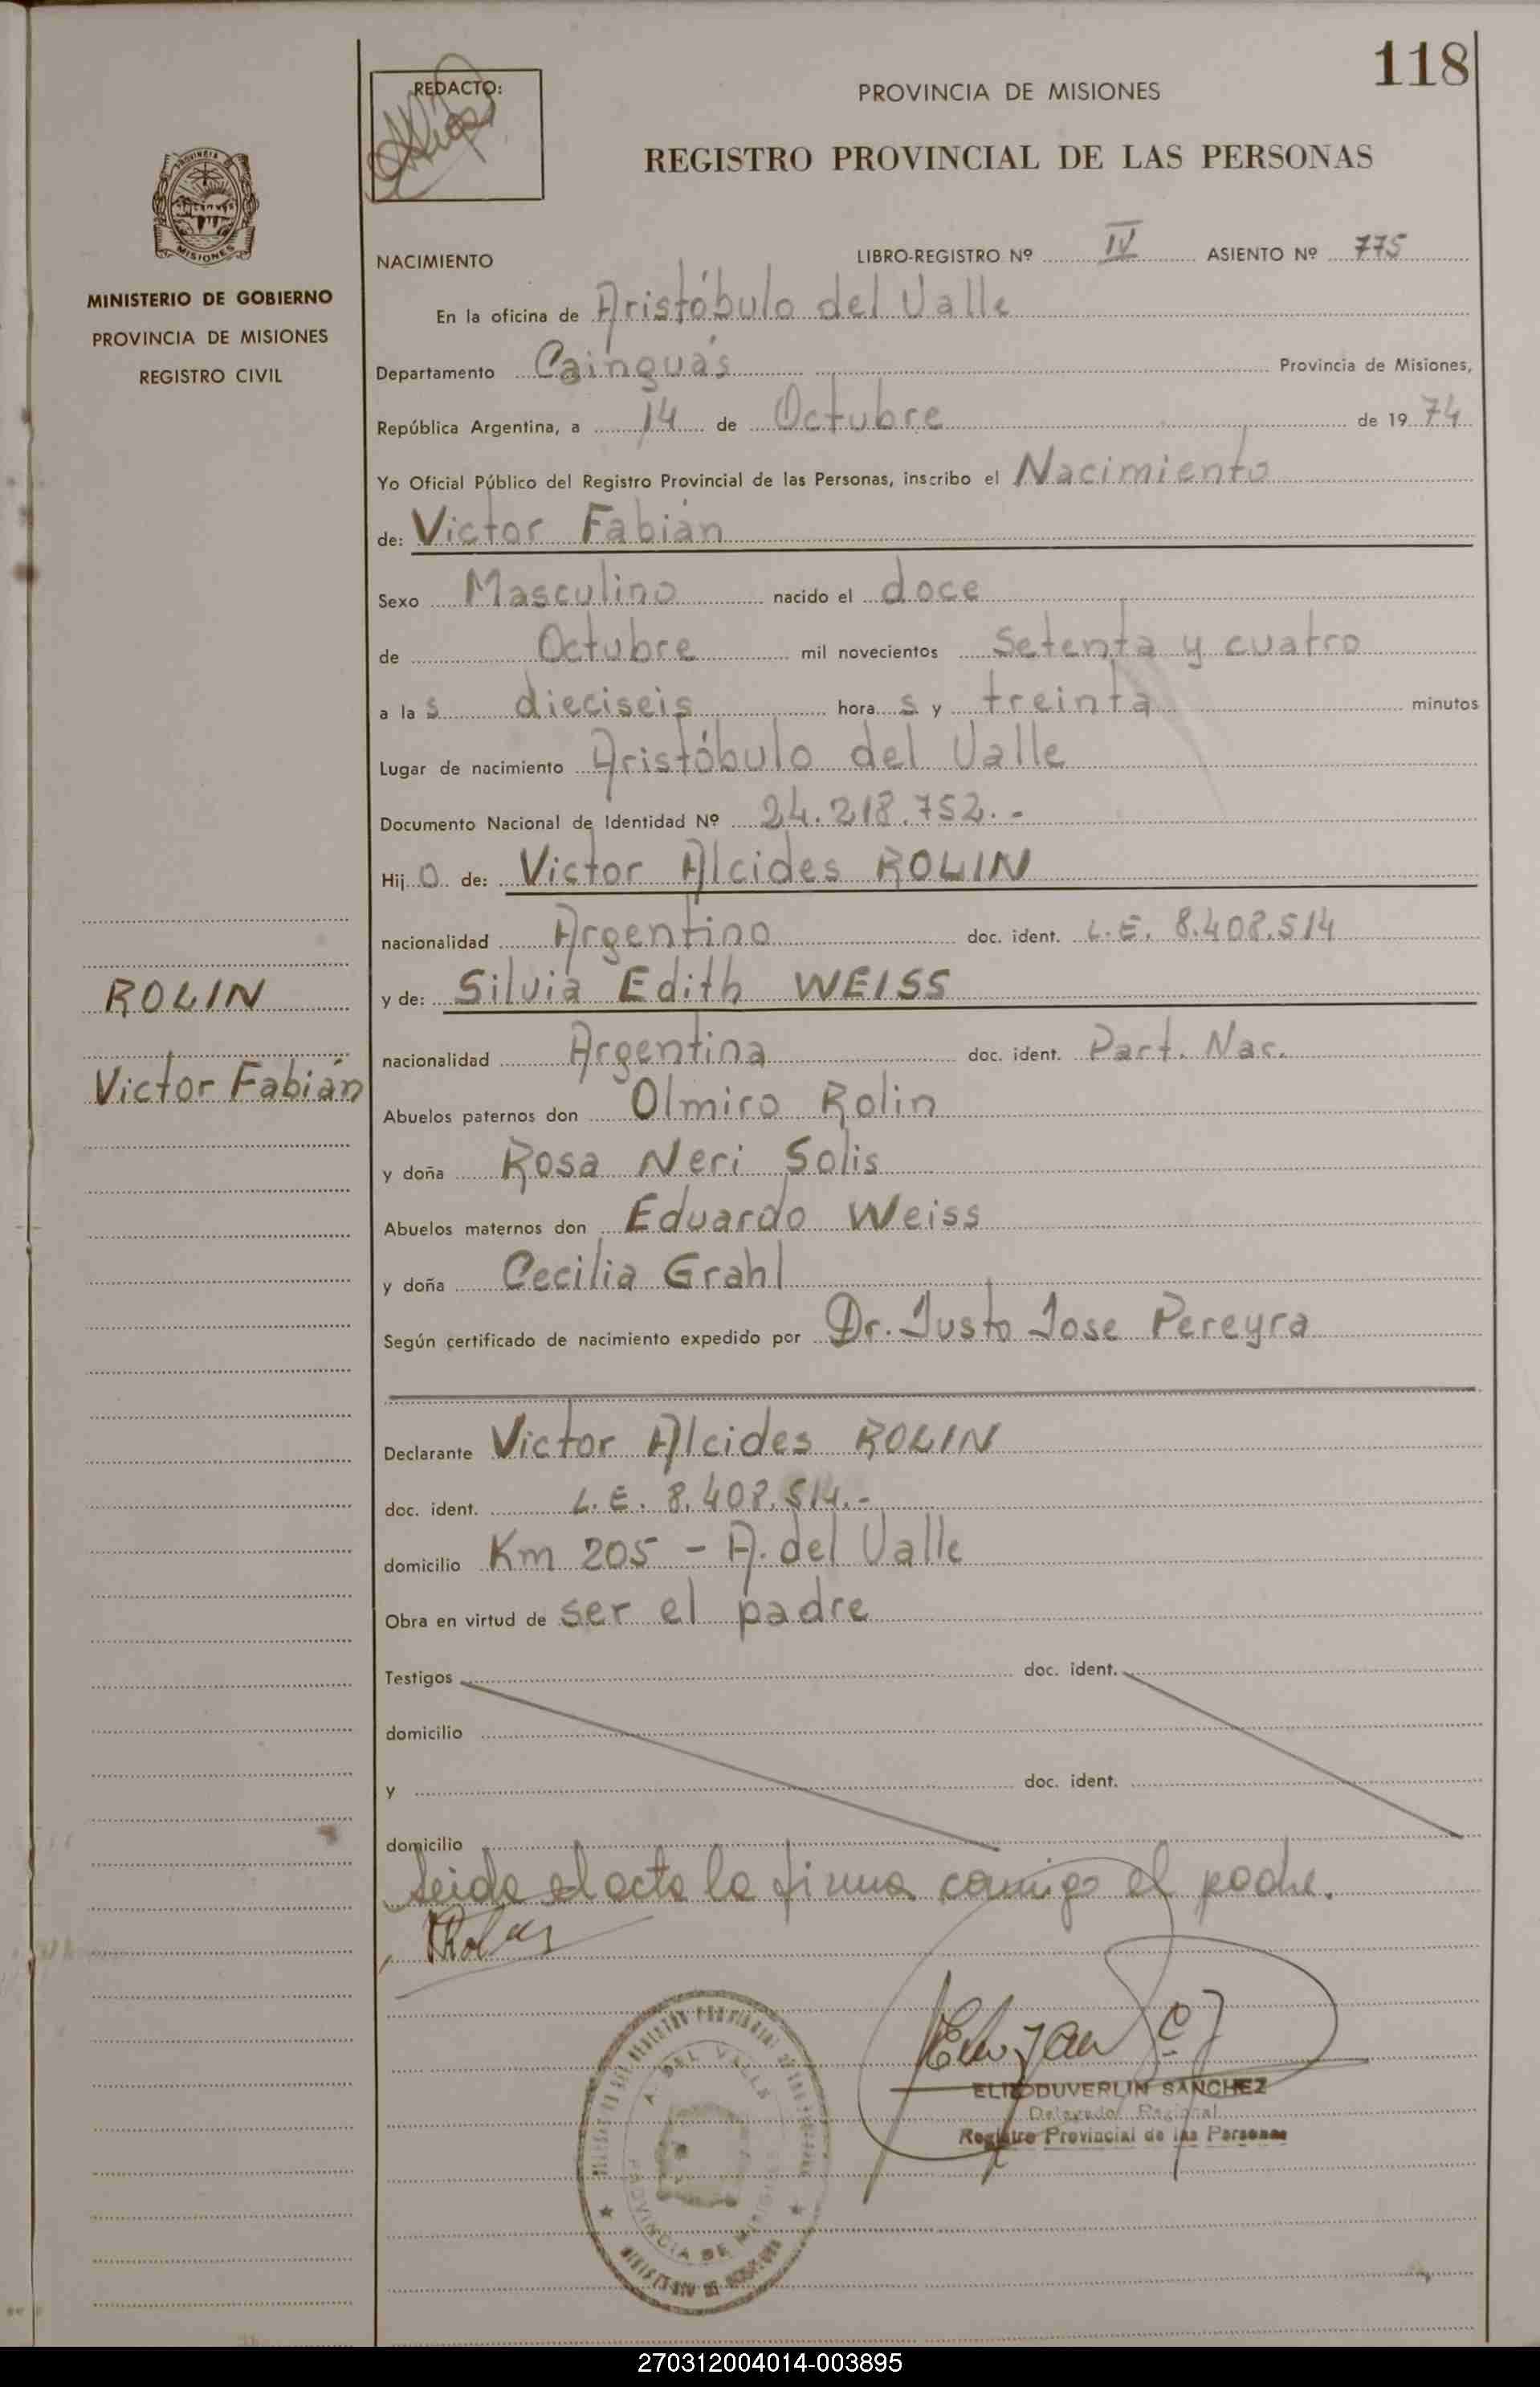 118
REDACTO:
PROVINCIA DE MISIONES
REGISTRO PROVINCIAL DE LAS PERSONAS
PROVINCIA
MISIONES
MINISTERIO DE GOBIERNO
PROVINCIA DE MISIONES
REGISTRO CIVIL
NACIMIENTO LIBRO-REGISTRO Nº IV ASIENTO Nº 775
En la oficina de Aristóbulo del Valle
Departamento Cainguás Provincia de Misiones,
República Argentina, a 14 de Octubre de 1974
Yo Oficial Público del Registro Provincial de las Personas, inscribo el Nacimiento
de: Victor Fabián
Sexo Masculino nacido el doce
de Octubre mil novecientos setenta y cuatro
a las dieciseis horas y treinta minutos
Lugar de nacimiento Aristóbulo del Valle
Documento Nacional de Identidad Nº 24.218.752.-
Hijo de: Victor Alcides ROLIN
nacionalidad Argentino doc. ident. L.E. 8.408.514
ROLIN
y de: Silvia Edith WEISS
nacionalidad Argentina doc. ident. Part. Nac.
Victor Fabián
Abuelos paternos don Olmiro Rolin
y doña Rosa Neri Solis
Abuelos maternos don Eduardo Weiss
y doña Cecilia Grahl
Según certificado de nacimiento expedido por Dr. Justo Jose Pereyra
Declarante Victor Alcides ROLIN
doc. ident. L.E. 8.408.514.-
domicilio Km 205 - A. del Valle
Obra en virtud de ser el padre
Testigos doc. ident.
domicilio
y doc. ident.
domicilio
Leida el acta la firma conmigo el padre.
A. DEL VALLE
PROVINCIA DE MISIONES
SANCHEZ
Delegado Regional
Registro Provincial de las Personas
270312004014-003895